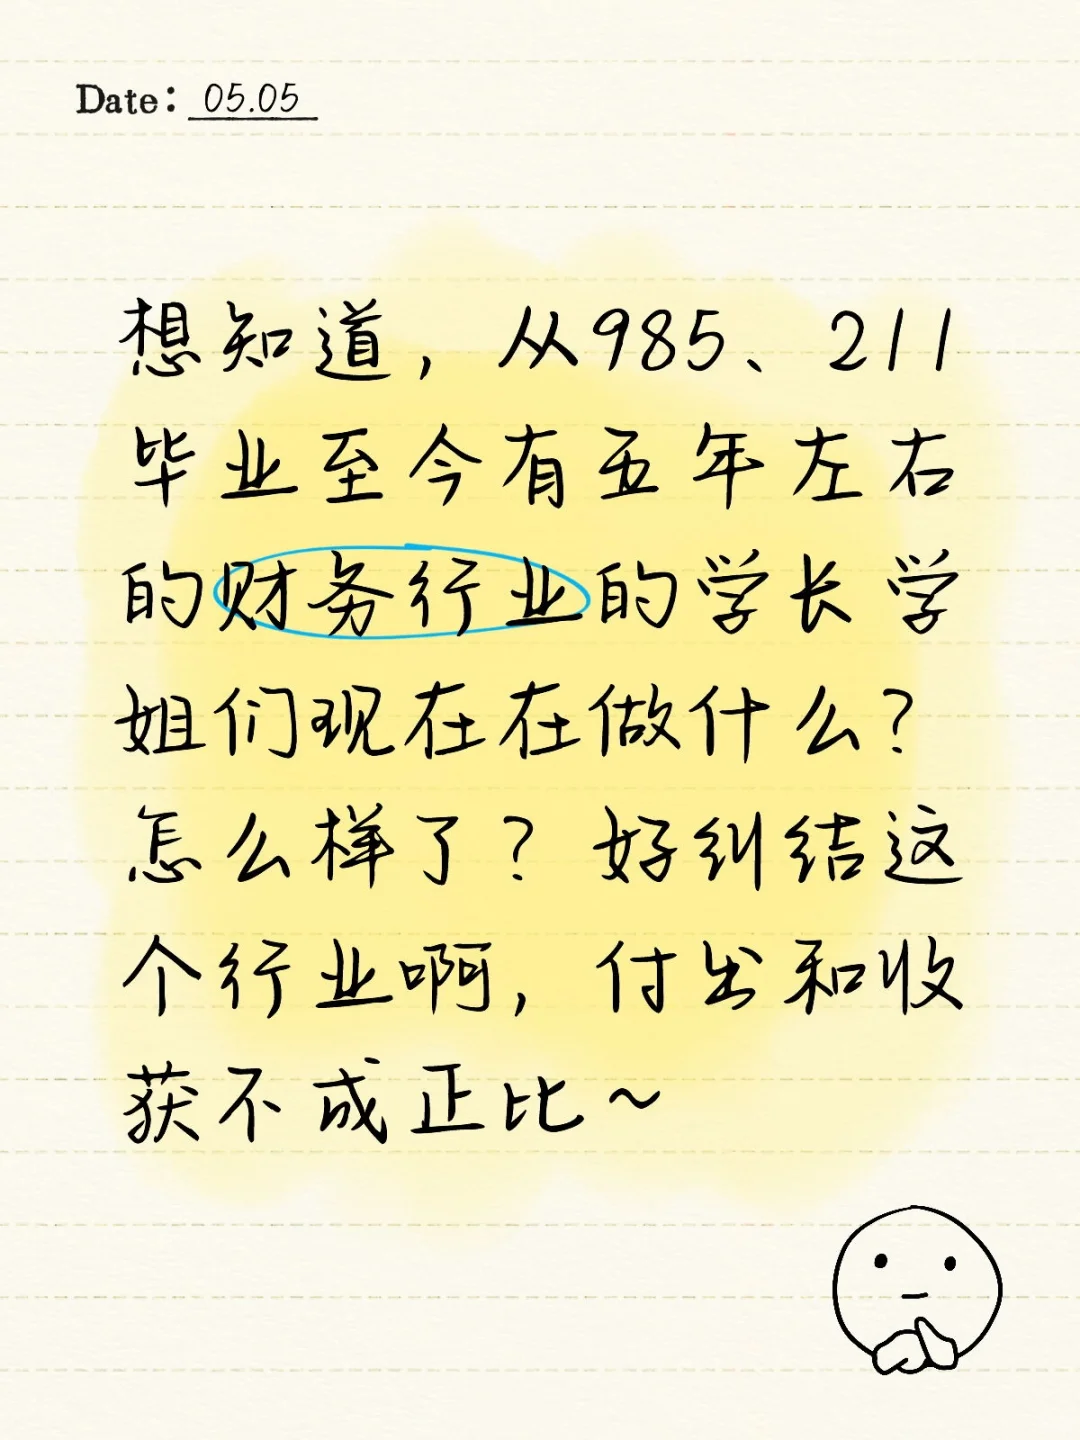 Date: 05.05
想知道，从985、211
毕业至今有五年左右
的财务行业的学长学
姐们现在在做什么？
怎么样了？好纠结这
个行业啊，付出和收
获不成正比~